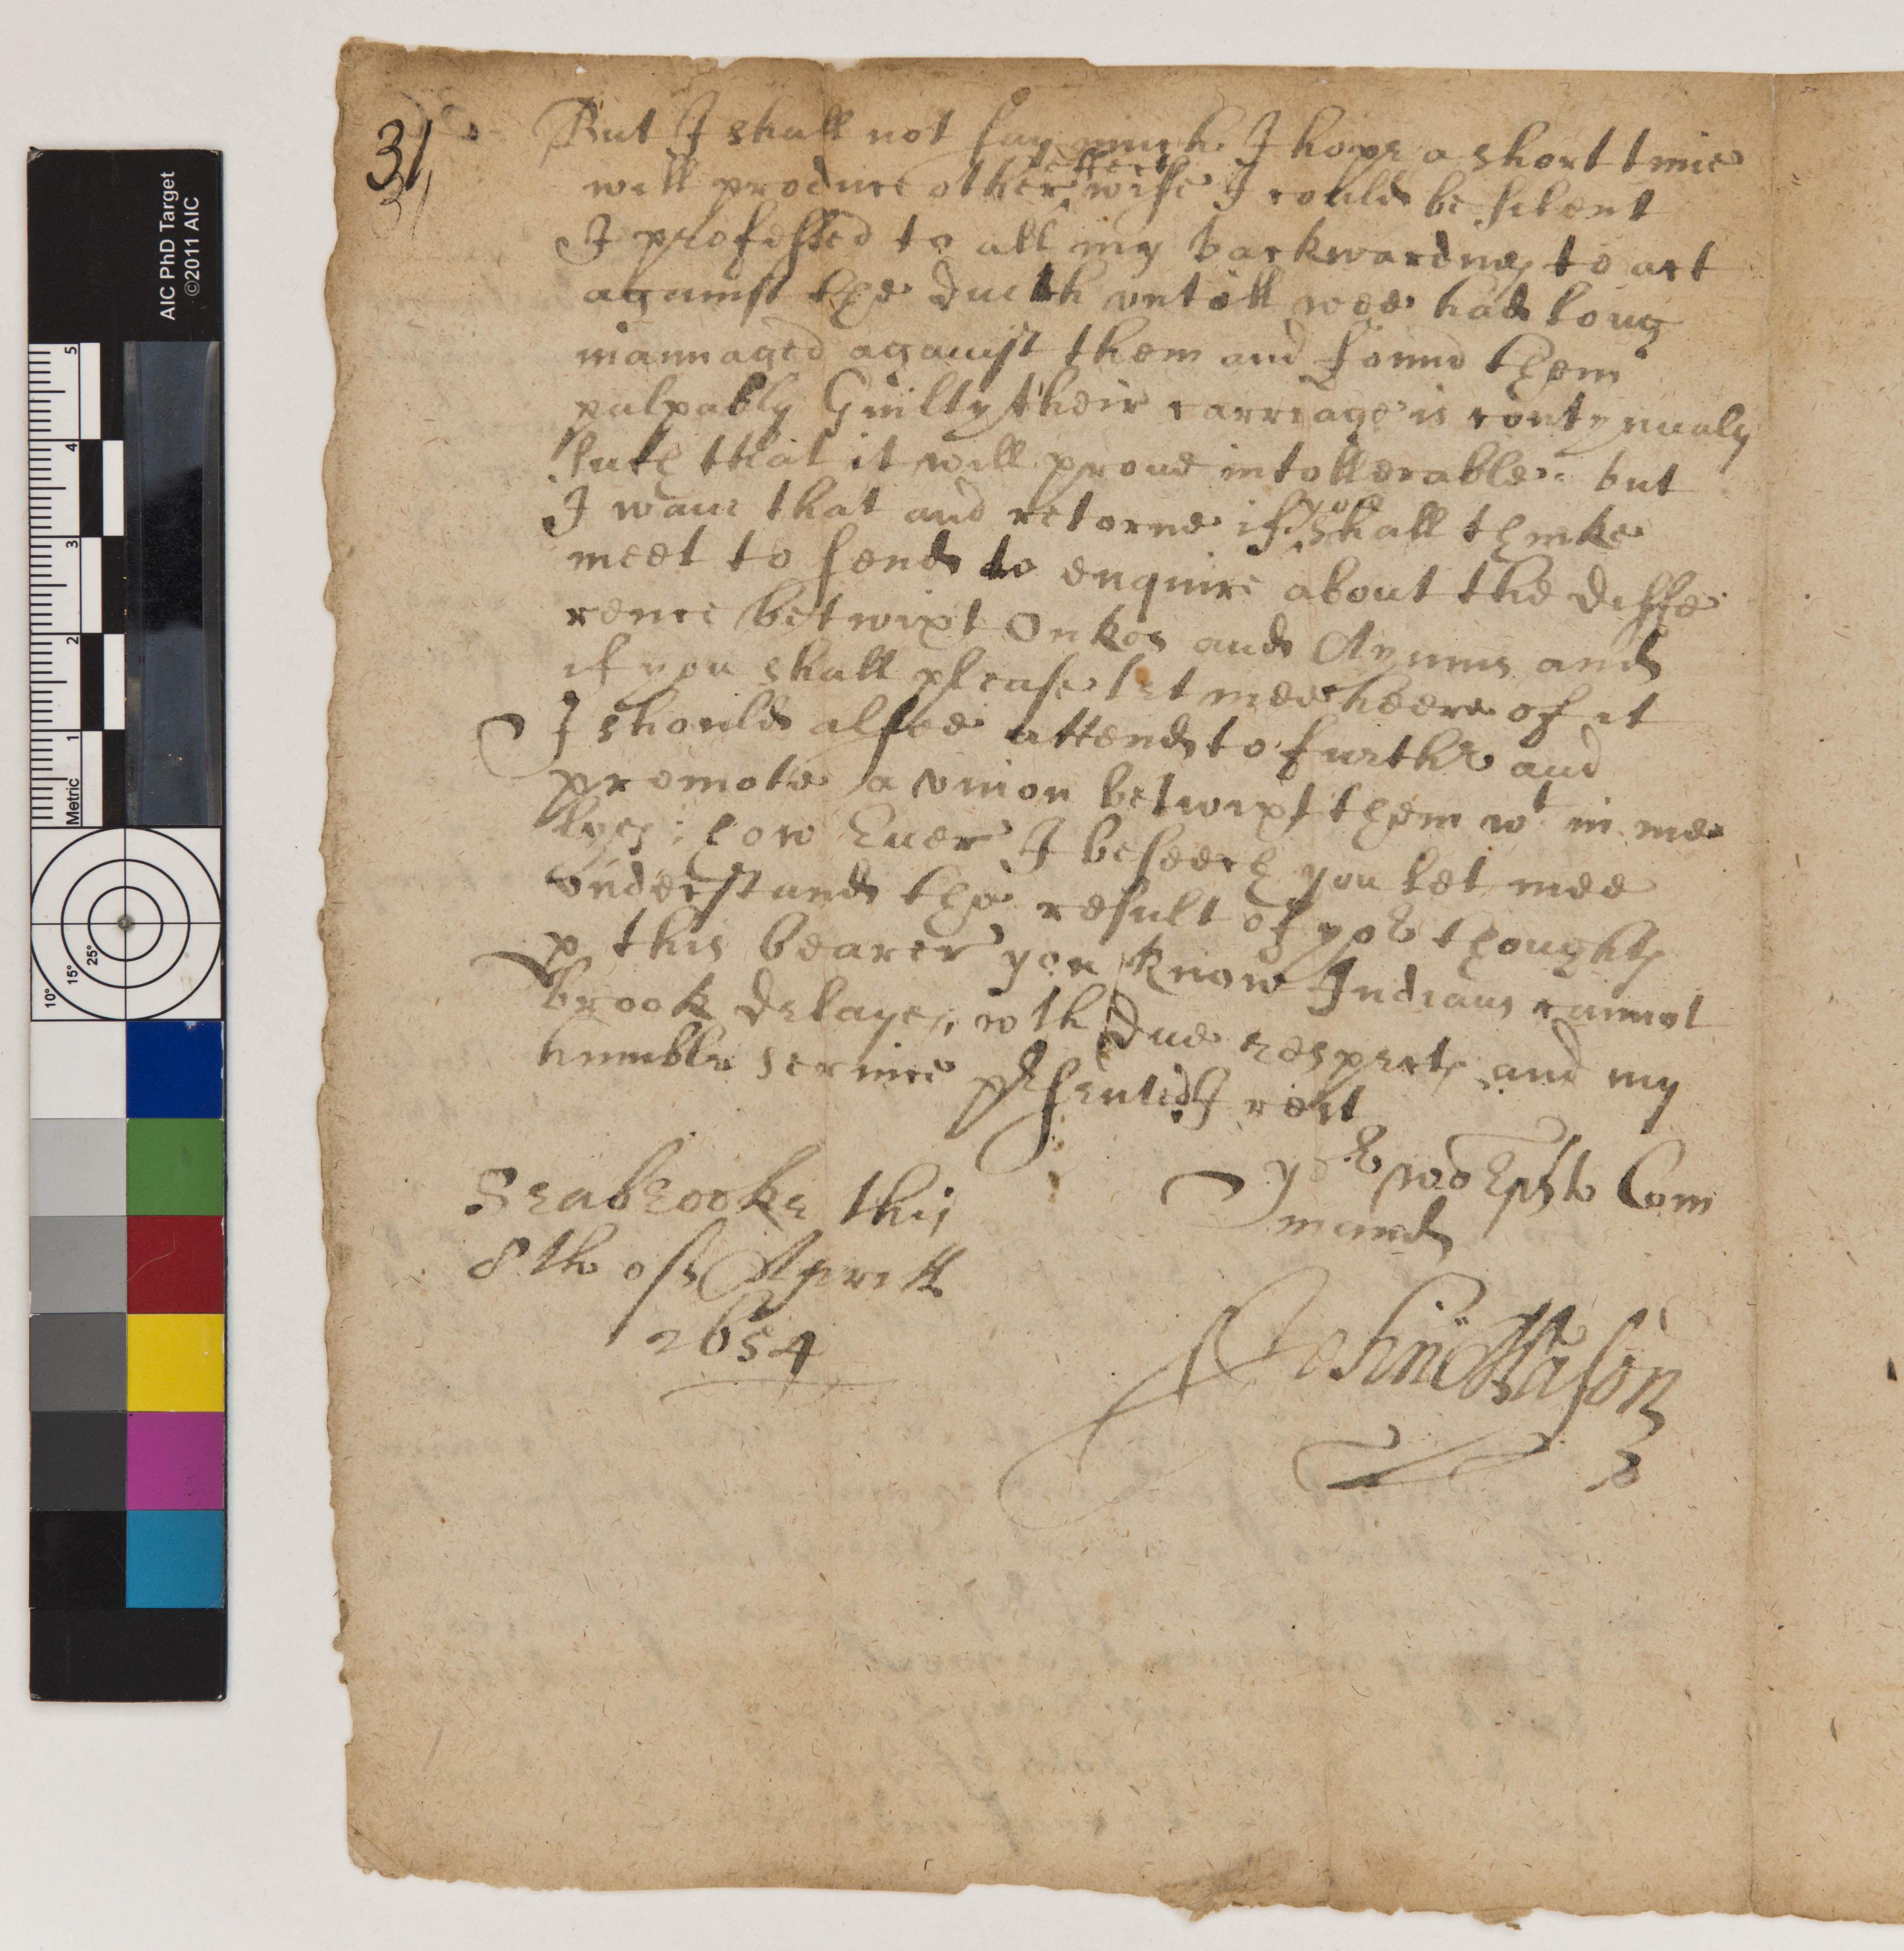 31
31
But I shall not say much I hope a short time
effects
will produce other wise I could be silent
I professed to all my backwardnes to act
against the Dutch vntill wee had long
mannaged against them and found them
palpably Guilty their carriage is contynualy
such that it will proue intollerable: but
you
I waue that and retorne if shall thinke
meet to send to enquire about the diffe
rence betwixt Onkos and Aynms and
if you shall please let mee heere of it
I should alsoe attend to furthr and
promote a vnion betwixt them wt in me
lyes: how Euer I beseech you let mee
vnderstand the result of yor thoughts
p this bearer you know Indians cannot
brook delayes, wth due respects and my
humble seruice prsented I rest
Seabrooke this
8th of Aprill
1654
yor worshps to Com
mand
John Mason
AIC PhD Target
©2011 AIC
Metric 1 2 3 4 5
10° 15° 25°